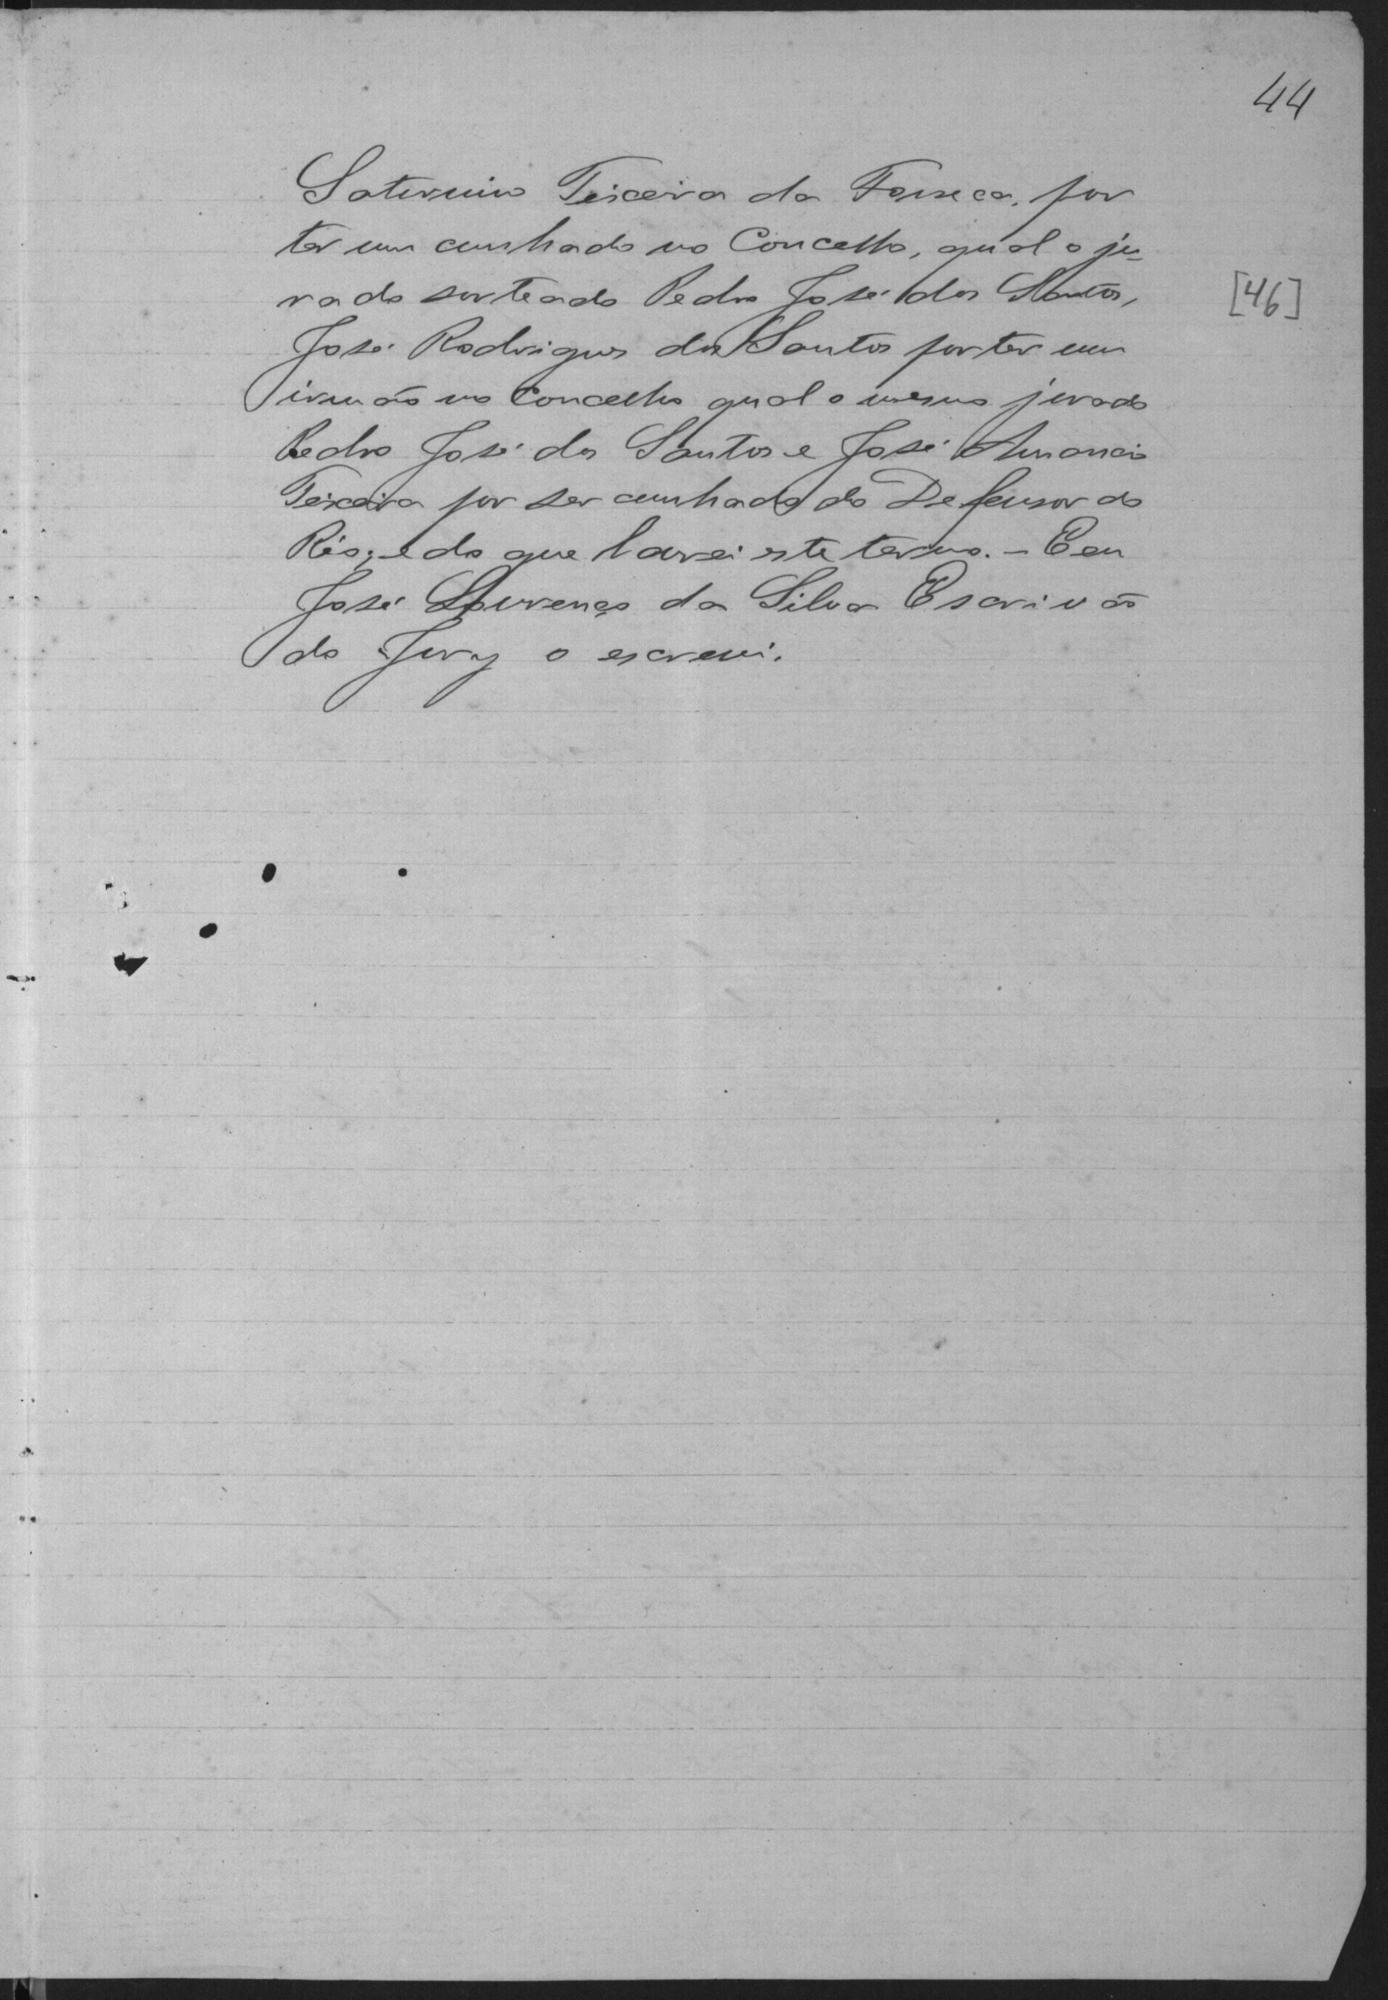 44
Saturnino Teixeira da Fonseca, por
ter um cunhado no Concelho, qual o ju-
rado sorteado Pedro José dos Santos,
[46]
José Rodrigues dos Santos por ter um
irmão no Concelho qual o mesmo jurado
Pedro José dos Santos e José Amancio
Teixeira por ser cunhado do Defensor do
Réo; e do que lavrei este termo. - Eeu
José Lourenço da Silva Escrivão
do Jury o escrevi.